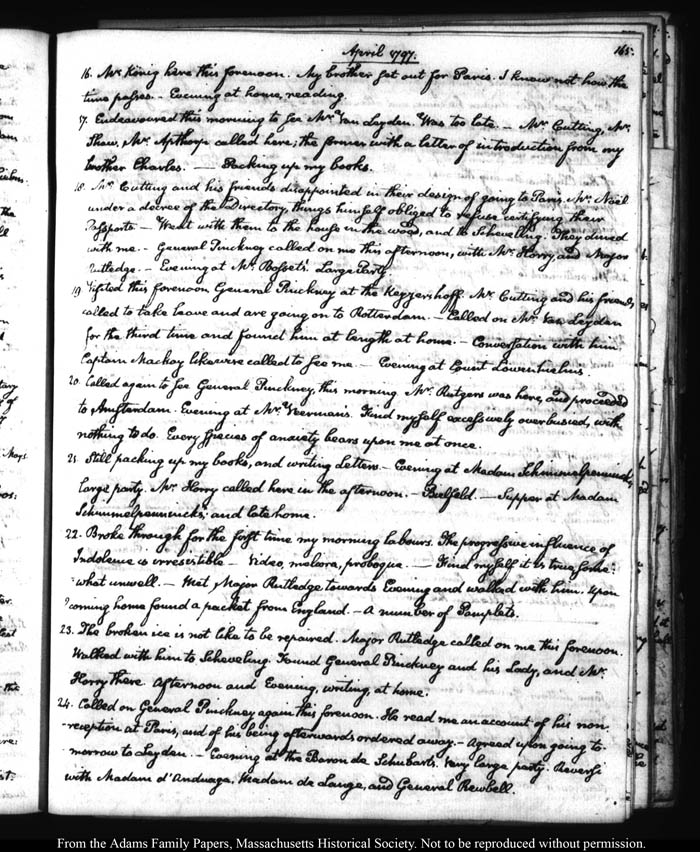 April 1797.
165.
16. Mr. König here this forenoon. My brother set out for Paris. I know not how the
time passes.- Evening at home, reading.
17. Endeavoured this morning to see Mr. Van Leyden. Was too late.- Mr. Cutting, Mr.
Shaw, Mr. Apthorp called here; the former with a letter of introduction from my
brother Charles.- Packing up my books.
18. Mr. Cutting and his friends disappointed in their design of going to Paris. Mr. Noël
under a decree of the Directory, things himself obliged to refuse certifying their
Passports.- Went with them to the house in the wood, and to Scheveling. They dined
with me.- General Pinckney called on me this afternoon, with Mr. Horry, and Major
Rutledge.- Evening at Mr. Bosset's. Large Party.
19 Visited this forenoon General Pinckney at the Keyzershoff. Mr. Cutting and his friends
called to take leave and are going on to Rotterdam.- Called on Mr. Van Leyden
for the third time and found him at length at home.- Conversation with him.
Captain Mackay likewise called to see me.- Evening at Count Löwenhielm's.
20. Called again to see General Pinckney, this morning. Mr. Rutgers was here, and proceeded
to Amsterdam. Evening at Mr. Veerman's. Find myself excessively overbusied, with
nothing to do. Every species of anxiety bears upon me at once.
21. Still packing up my books, and writing letters.- Evening at Madam Schimmelpenninck's,
large party. Mr. Horry called here in the afternoon.- Bielfeld.- Supper at Madam
Schimmelpenninck's; and late home.
22. Broke through for the first time my morning labours. The progressive influence of
Indolence is irresistible- Video, meliora, proboque.- Find myself it is true some:
:what unwell.- Met Major Rutledge towards Evening and walked with him. Upon
coming home found a packet from England.- A number of Pamplets.
23. The broken ice is not like to be repaired. Major Rutledge called on me this forenoon.
Walked with him to Scheveling. Found General Pinckney and his Lady, and Mr.
Horry there. Afternoon and Evening, writing, at home.
24. Called on General Pinckney again this forenoon. He read me an account of his non
-reception at Paris, and of his being afterwards ordered away.- Agreed upon going to-
morrow to Leyden.- Evening at the Baron de Schubart's. Very large party. Reversi
with Madam d'Anduaga, Madam de Lange, and General Rewbell.
From the Adams Family Papers, Massachusetts Historical Society. Not to be reproduced without permission.